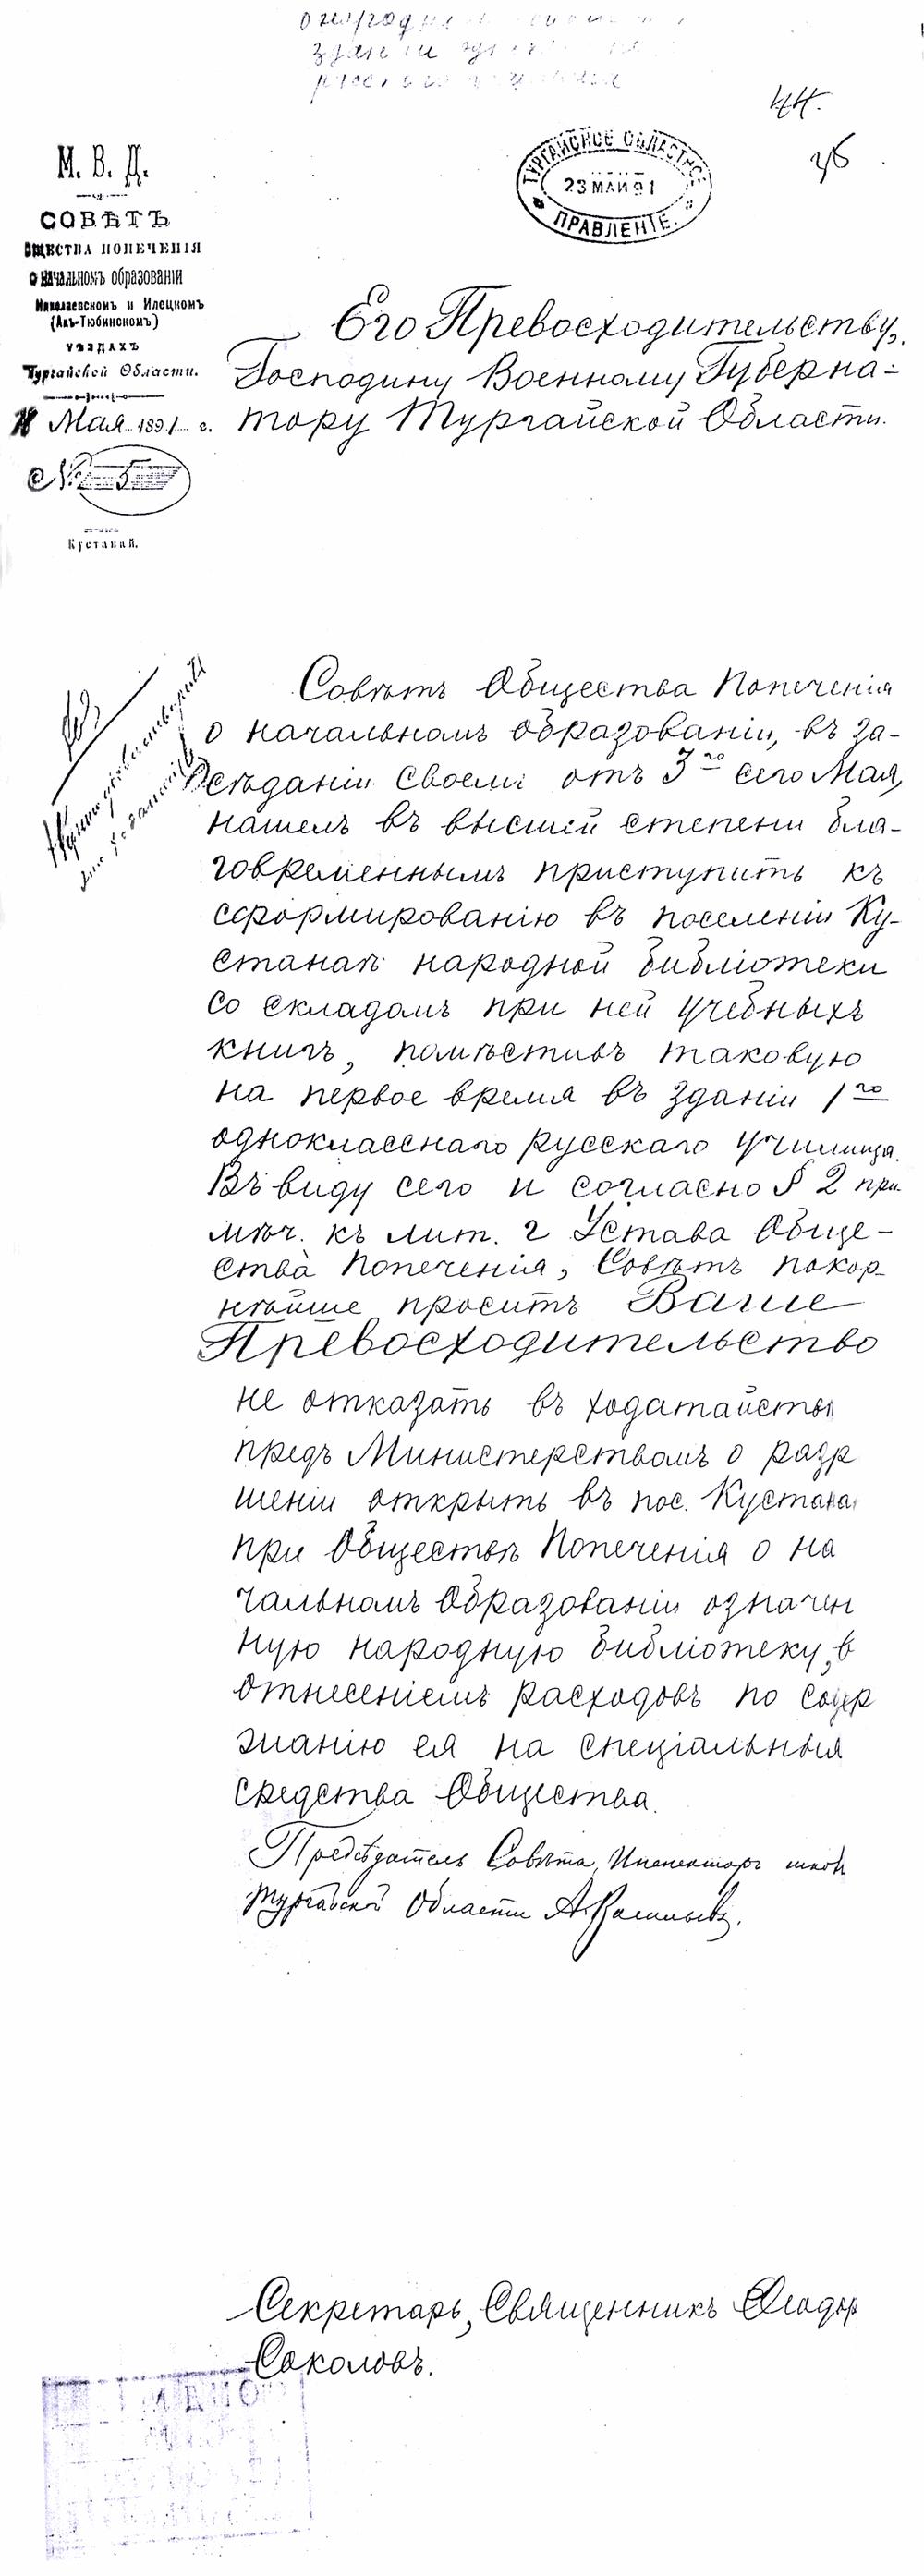 44.
36
М. В. Д.
СОВѢТЪ
ОБЩЕСТВА ПОПЕЧЕНІЯ
о начальномъ образованіи
Николаевскомъ и Илецкомъ
(Акъ-Тюбинскомъ)
УѢЗДАХЪ
Тургайской Области.
Мая 1891 г.
№ 5
Кустанай.
ТУРГАЙСКОЕ ОБЛАСТНОЕ
23 МАЙ 91
ПРАВЛЕНІЕ.
Его Превосходительству,
Господину Военному Губерна-
тору Тургайской Области.
Совѣтъ Общества Попеченія
о начальномъ образованіи, въ за-
сѣданіи своемъ отъ 3го сего Мая,
нашелъ въ высшей степени бла-
говременнымъ приступить къ
сформированію въ поселеніи Ку-
станаѣ народной библіотеки
со складомъ при ней учебныхъ
книгъ, помѣстивъ таковую
на первое время въ зданіи 1го
одноклассного русскаго училища.
Въ виду сего и согласно § 2 при
мѣч. къ лит. г Устава Обще-
ства Попеченія, Совѣтъ покор-
нѣйше проситъ Ваше
Превосходительство
не отказать въ ходатайств
предъ Министерствомъ о разр
шеніи открыть въ пос. Кустана
при Обществѣ Попеченія о на
чальномъ Образованіи означен
ную народную библіотеку, с
отнесеніемъ расходовъ по содер
жанію ея на спеціальныя
средства Общества.
Предсѣдатель Совѣта, Инспекторъ школъ
Тургайской Области А. Васильевъ.
Секретарь, Священникъ Ѳеодоръ
Соколовъ.